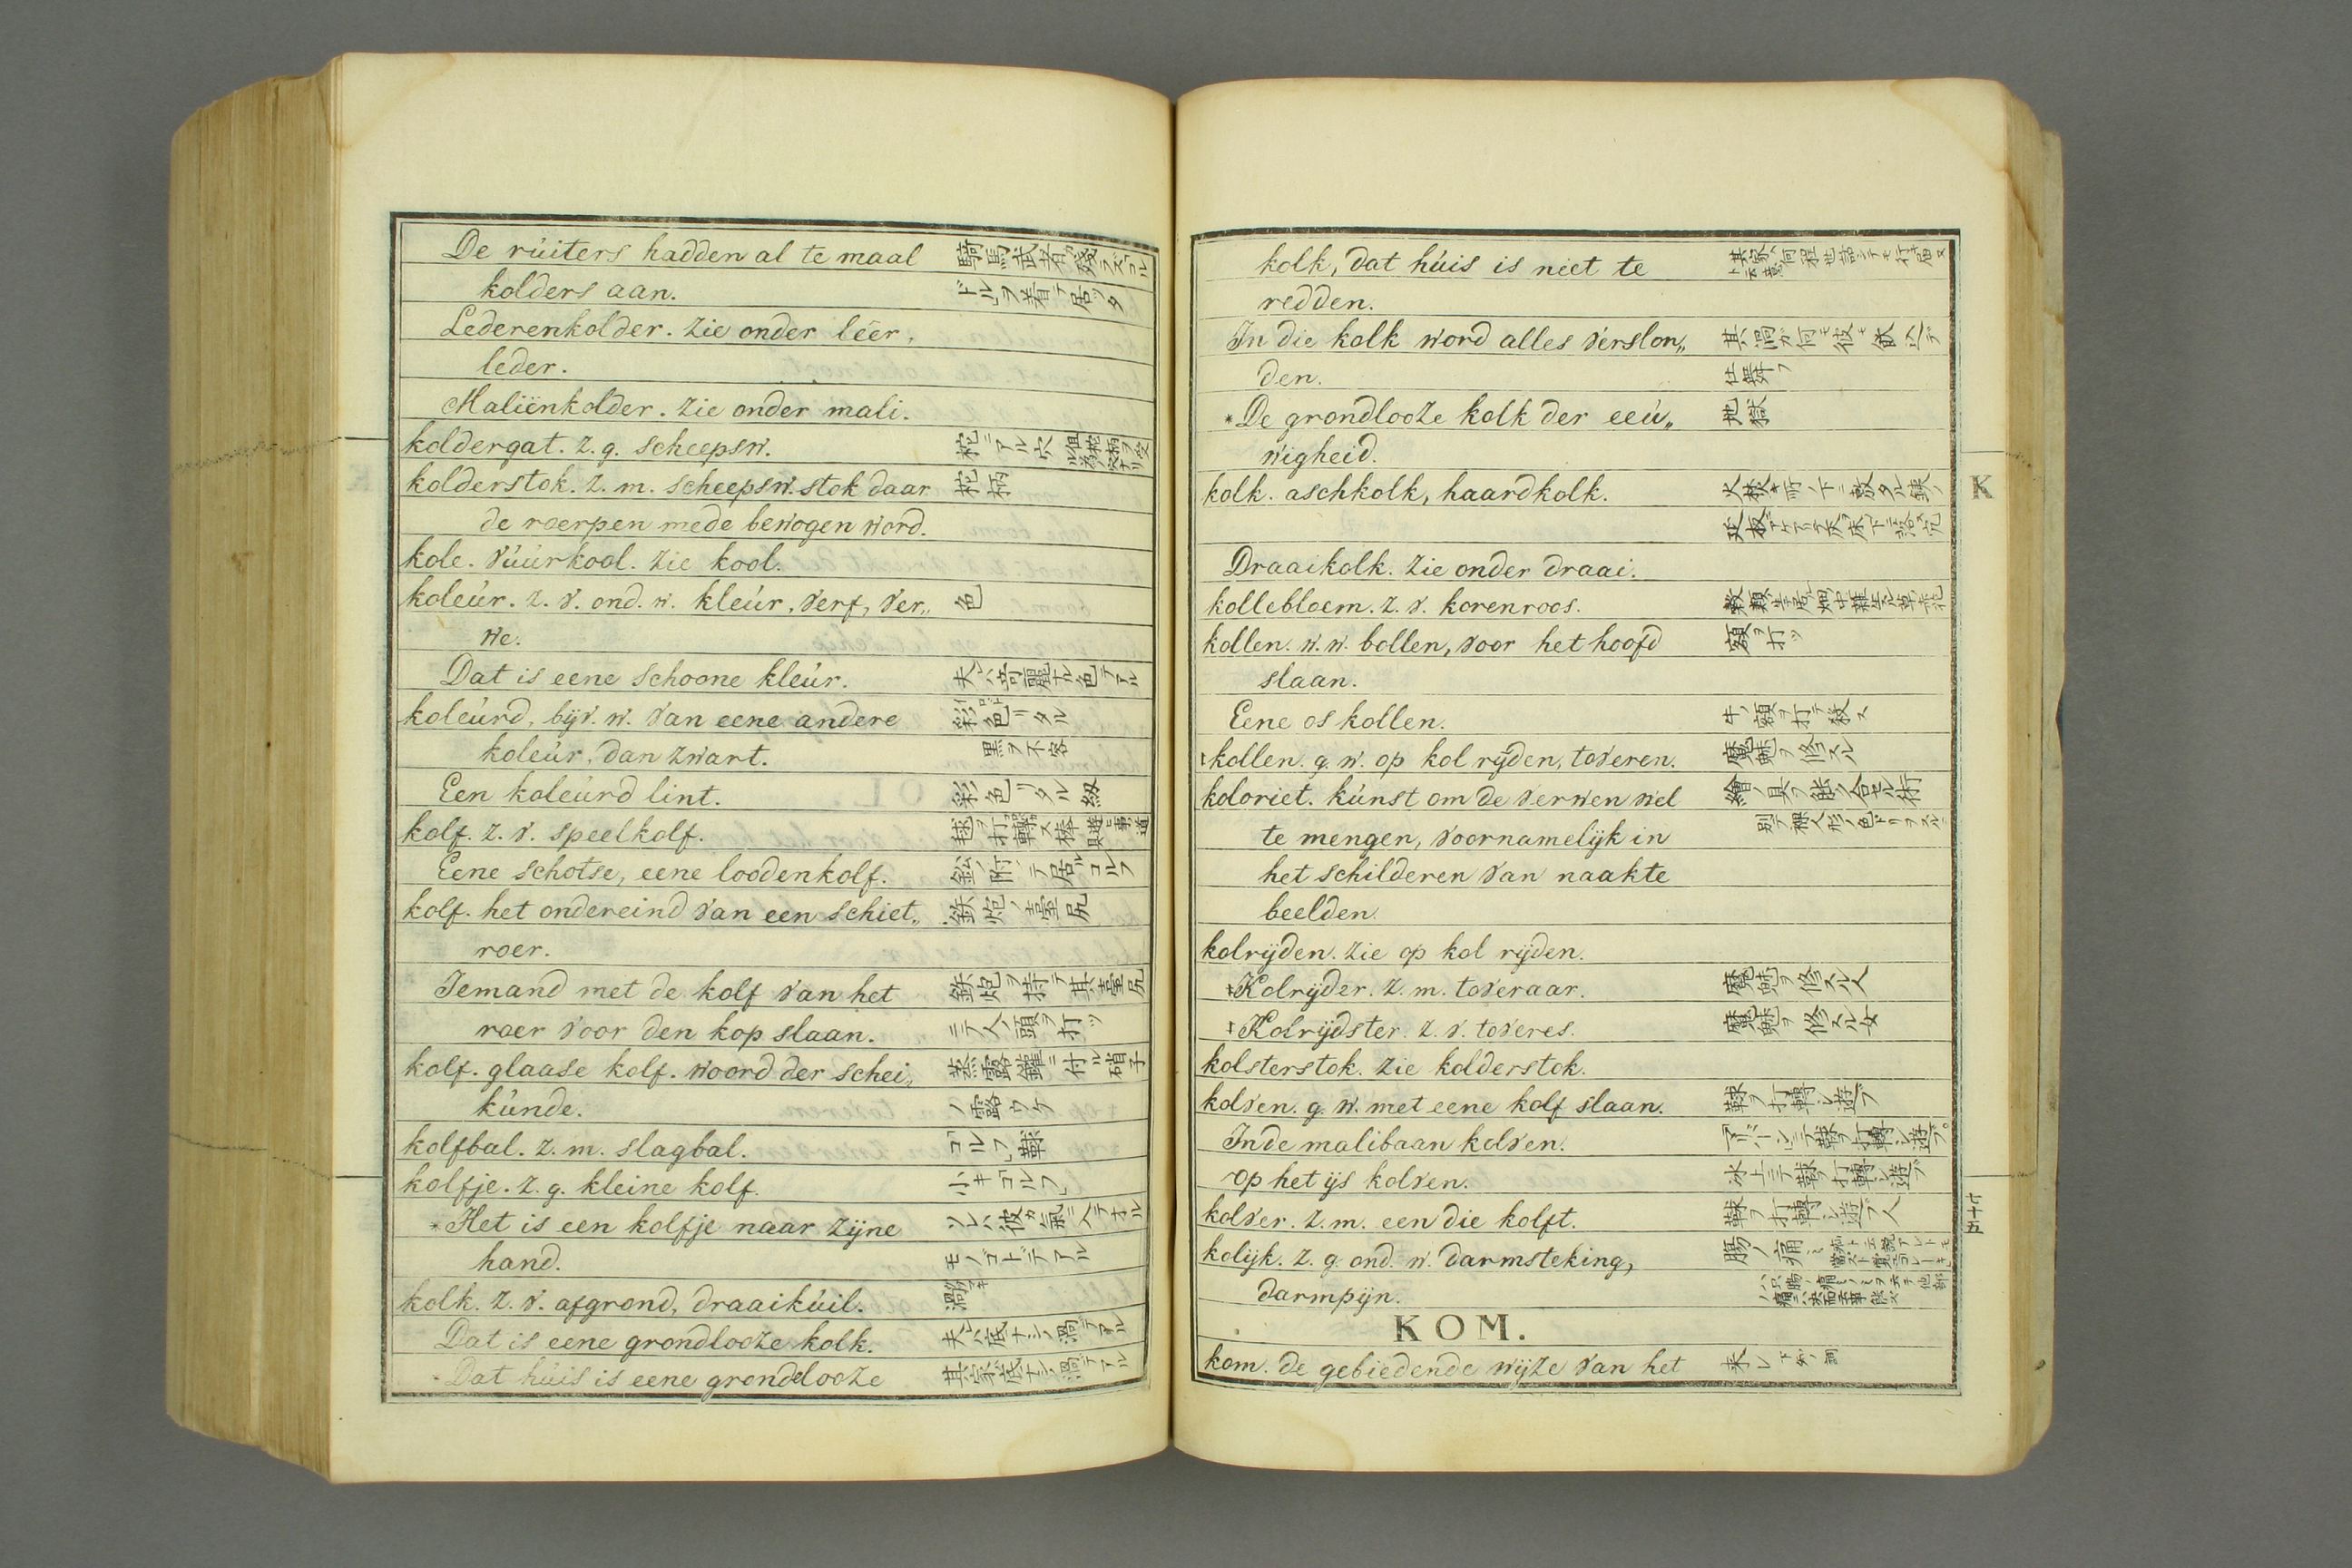 De rúiters hadden al te maal 騎馬武者ガ殘ラズ「コル
kolders aan. ドル」ヲ着テ居ッタ
Lederenkolder. zie onder léer,
leder.
Maliënkolder. zie onder mali.
koldergat. z. g. scheepsw. 柁ニアル穴
kolderstok. z. m. scheepsw. stok daar 柁柄
de roerpen mede bewogen word.
kole. vúúrkool. zie kool.
koleúr. z. v. ond. w. kleúr, verf, ver„ 色
we.
Dat is eene schoone kleúr. 夫レハ奇麗ナル色デアル
koleúrd, bijv. w. van eene andere 彩色リタル
koleúr, dan zwart. 黒ヲ不容
Een koleúrd lint. 彩色リタル紐
kolf. z. v. speelkolf. 毬ヲ打轉ス棒
Eene schotse, eene loodenkolf. 鉛ノ附テ居ル「コルフ
kolf. het ondereind van een schiet„ 鉄炮ノ臺尻
roer.
Iemand met de kolf van het 鉄炮ヲ持テ其臺尻
roer voor den kop slaan. ニテ人ノ頭ヲ打ツ
kolf. glaase kolf. woord der schei„ 蒸露鑵ニ付ル硝子
kúnde. ノ露ウケ
kolfbal. z. m. slagbal. 「コルフ」鞠
kolfje. z. g. kleine kolf. 小キ「コルフ」
*Het is een kolfje naar zijne ソレハ彼カ氣ニ入テオル
hand. モノゴトデアル
kolk. z. v. afgrond, draaikúil. 渦
Dat is eene grondlooze kolk. 夫レハ底ナシノ渦デアル
*Dat húis is eene grondelooze 其家ハ底ナシノ渦デアル
kolk, dat húis is niet te 其家ハ何程世話シテモ行届ヌ
redden.
In die kolk word alles verslon„ 其渦ガ何モ彼モ飲込デ
den. 仕舞フ
*De grondlooze kolk der eeú„ 地獄
wigheid.
K
kolk. aschkolk, haardkolk. 火焚所ノ下ニ敷タル鉄ノ
Draaikolk. zie onder draai.
kollebloem. z. v. korenroos.
kollen. w. w. bollen, voor het hoofd 額ヲ打ツ
slaan.
Eene os kollen. 牛ノ額ヲ打テ殺ス
‡kollen. g. w. op kol rijden, toveren. 魔魅ヲ修スル
koloriet. kúnst om de verwen wel 繪ノ具ヲ能ク合セル術
te mengen, voornamelijk in 別テ裸人形ノ色ドリヲスル
het schilderen van naakte
beelden.
kolrijden. zie op kol rijden.
‡Kolrijder. z. m. toveraar. 魔魅ヲ修スル人
‡Kolrijdster. z. v. toveres. 魔魅ヲ修スル女
kolsterstok. zie kolderstok.
kolven. g. w. met eene kolf slaan. 鞠ヲ打轉シ遊ブ
In de malibaan kolven. ニテ鞠ヲ打轉シ遊ブ。
op het ijs kolven. 氷上ニテ鞠ヲ打轉シ遊ブ
kolver. z. m. een die kolft. 鞠ヲ打轉シ遊ブ人
七十五
kolijk. z. g. ond. w. darmsteking, 腸ノ痛
darmpijn.
KOM.
kom. de gebiedende wijze van het 来レ 下知ノ詞